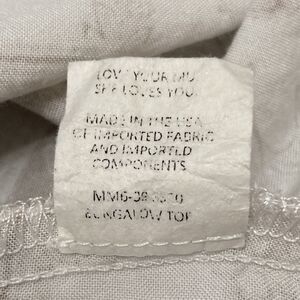 LOVE YOUR MU
SHE LOVES YOU.
MADE IN THE USA
OF IMPORTED FABRIC
AND IMPORTED
COMPONENTS
BUNGALOW TOP